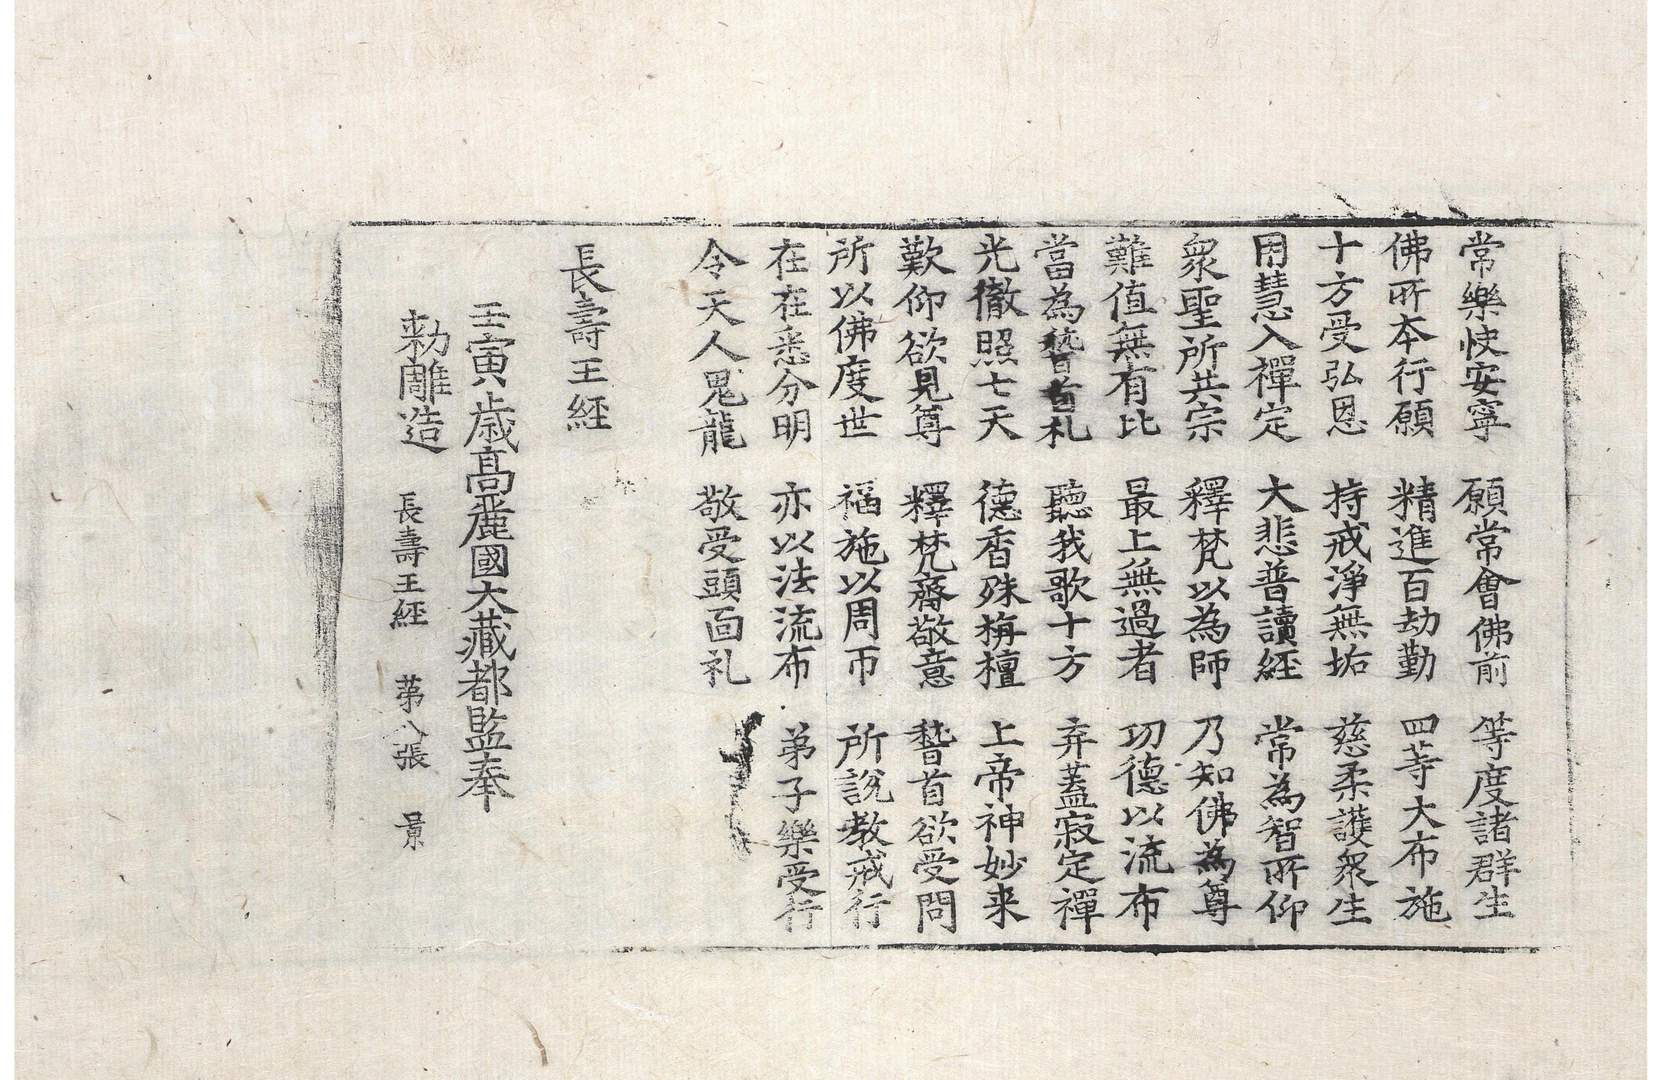 常樂快安寧　願常會佛前　等度諸群生
佛所本行願　精進百劫勤　四等大布施
十方受弘恩　持戒淨無垢　慈柔護衆生
用慧入禪定　大悲普讀經　常為智所仰
衆聖所共宗　釋梵以為師　乃知佛為尊
難值無有比　最上無過者　功德以流布
當為嵆首礼　聽我歌十方　弃蓋寂定禪
光徹照七天　德香殊栴檀　上帝神妙来
歎仰欲見尊　釋梵齋敬意　嵆首欲受問
所以佛度世　福施以周帀　所說教戒行
在在悉分明　亦以法流布　弟子樂受行
令天人鬼龍　敬受頭面礼
長壽王經
壬寅歳高麗國大藏都監奉
勑雕造
長壽王經　第八張　景